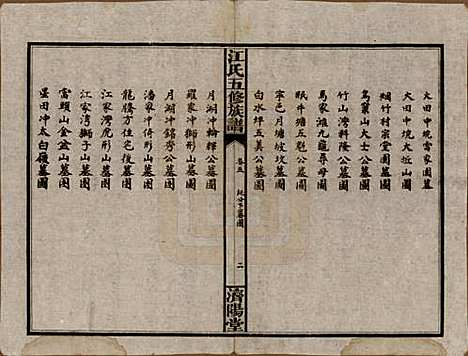 大田中坑雷家園墓
大田中境大坵山圖
烟竹村宗堂圖墓圖
烏巢山大士公墓圖
竹山灣料隆公墓圖
馬家灘九龍尋母圖
眠牛塘五魁公墓圖
寧邑月塘坡坟墓圖
白水坪五美公墓圖
江氏五修族譜
卷五
墓圖
二
濟陽堂
月湖冲輪輝公墓圖
羅家冲獅形山墓圖
月湖冲錦秀公墓圖
潘家冲倚形山墓圖
龍騰方住宅後墓圖
江家灣虎形山墓圖
江家灣獅子山墓圖
富頭山金盆山墓圖
墨田冲太白嶺墓圖